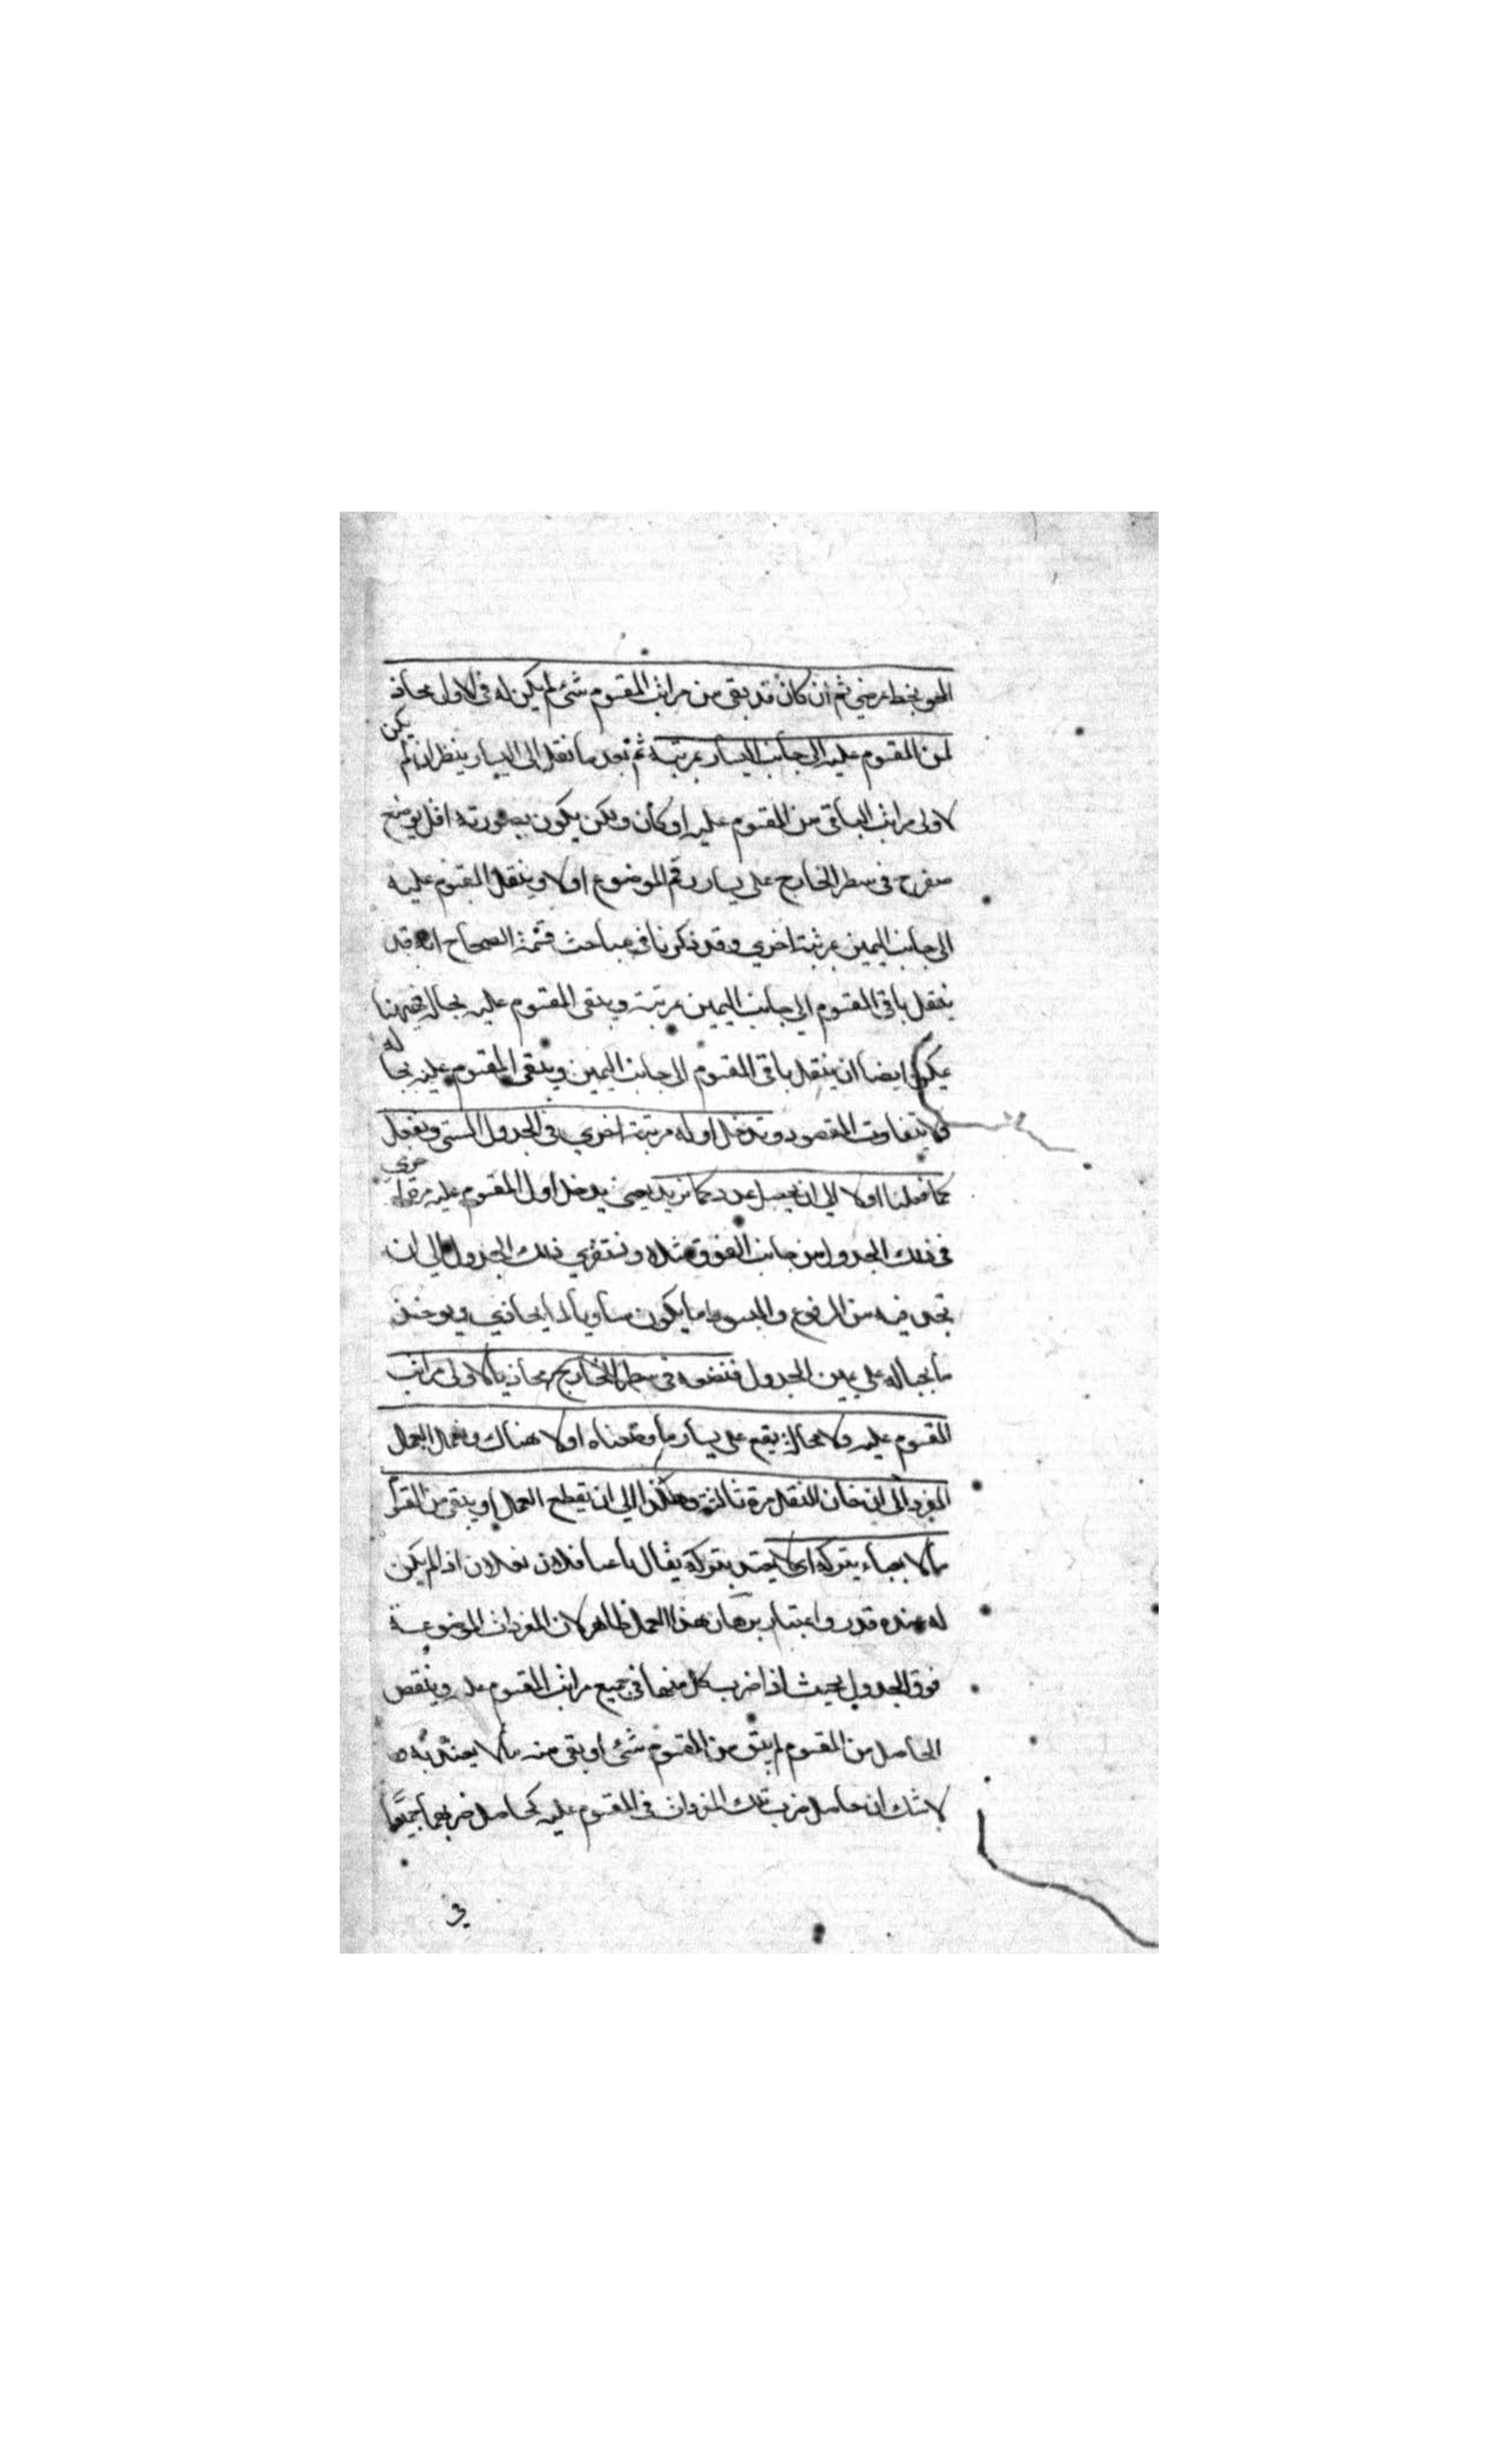 المحو بخط عرضي ثم ان كان قد بقى من مراتب المقسوم شئ لم يكن له فى الاول محاذ
من المقسوم عليه الى جانب اليسار بمرتبة ثم بعد ما نقل الى اليسار ينظر ان لم يكن
لاولى مراتب الباقى من المقسوم عليه او كان ولكن يكون بصورته اقل يوضع
صفر ح فى سطر الخارج على يسار رقم الموضوع اولا وينقل المقسوم عليه
الى جانب اليمين بمرتبة اخري وقد ذكرنا فى مباحث قسمة الصحاح انه قد
ينقل باقى المقسوم الى جانب اليمين بمرتبة ويبقى المقسوم عليه بحاله فههنا
يمكن ايضا ان ينقل باقى المقسوم الى جانب اليمين ويبقى المقسوم عليه بحاله
فلا يتفاوت المقصود وتدخل اوله مرتبة اخري فى الجدول الستى ونعمل
كما فعلنا اولا الى ان يحصل عدد كما نريد يعنى يدخل اول المقسوم عليه مرة اخرى
فى ذلك الجدول من جانب الفوق مثلا ونستقري ذلك الجدول الى ان
تجد فيه من المرفوع والمبسوط ما يكون مساويا لما يحاذي ويوخذ
ما بحياله على يمين الجدول فنضعه فى سطر الخارج محاذيا لاولى مراتب
المقسوم عليه ولا محالة يقع على يسار ما وضعناه اولا هناك ونعمل العمل
المفرد الى ان حان النقل مرة ثالثة وهكذا الى ان تقطع العمل او يبقى من
ما لا يعبأ بتركه اى لا يعتد بتركه يقال ما عبأ فلان بفلان اذا لم يكن
له عنده قدر واعتبار برهان هذا العمل ظاهر لان المفردات الموضوعة
فوق الجدول بحيث اذا ضرب كل منها فى جميع مراتب المقسوم عليه وينقص
الحاصل من المقسوم لم يبق من المقسوم شئ او بقى منه ما لا يعتد به
لا شك ان حاصل ضرب تلك المفردات فى المقسوم عليه كحاصل ضربها جميعا
فى